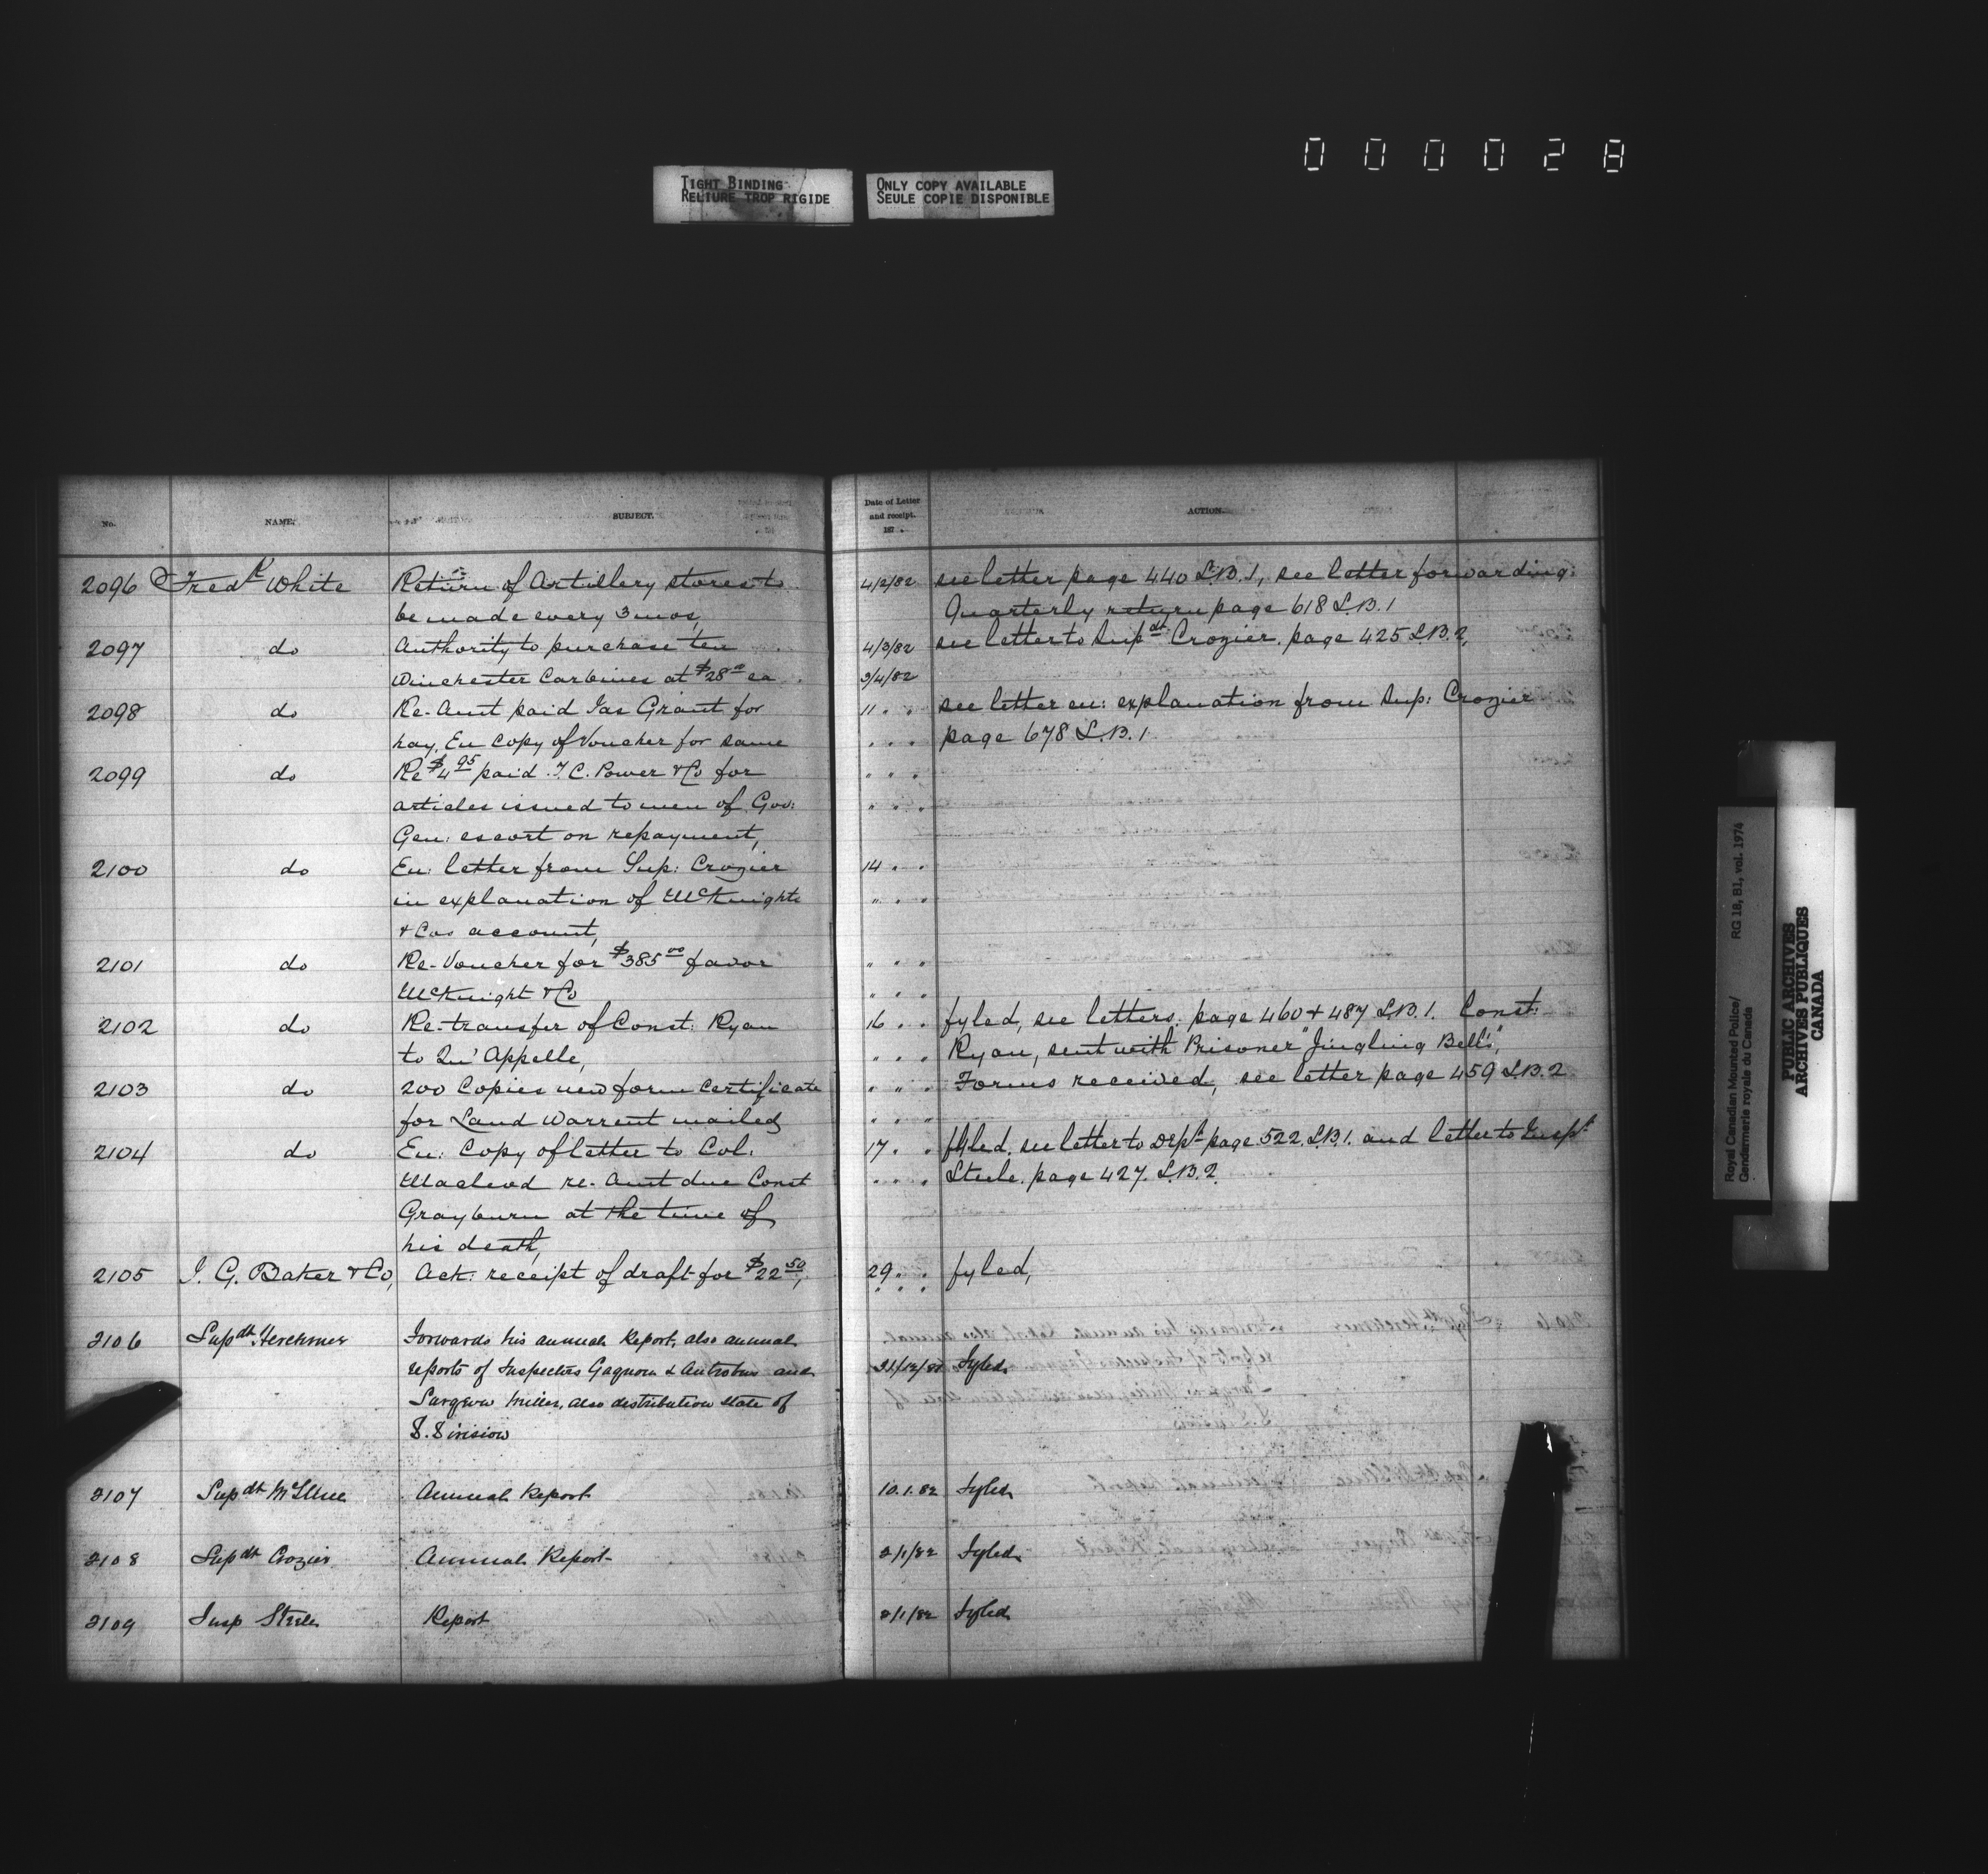 000028
TIGHT BINDING
RELIURE TROP RIGIDE
ONLY COPY AVAILABLE
SEULE COPIE DISPONIBLE
No. NAME. SUBJECT. Date of Letter and receipt. 187 . ACTION.
2096 Fredk White Return of Artillery stores to 4/2/82 see letter page 440 L.B.1, see letter forwarding
be made every 3 mos, Quarterly return page 618 L.B.1
2097 do Authority to purchase ten 4/3/82 see letter to Supdt Crozier. page 425 L.B.2,
Winchester Carbines at $28 00 ea 3/4/82
2098 do Re-Amt paid Jas Grant for 11 " " see letter en: explanation from Sup: Crozier
hay, En Copy of Voucher for same " " " page 678 L.B.1.
2099 do Re $4 95 paid T.C. Power & Co for " " "
articles issued to men of Gov: " " "
Gen: escort on repayment,
2100 do En: letter from Sup: Crozier 14 " "
in explanation of McKnights " " "
& Cos account,
2101 do Re-Voucher for $385 00 favor " " "
McKnight & Co " " "
2102 do Re-transfer of Const: Ryan 16 " " fyled, see letters. page 460 & 487 L.B.1. Const:
to Qu'Appelle, " " " Ryan, sent with Prisoner "Jingling Bells",
2103 do 200 Copies new form Certificate " " " Forms received, see letter page 459 L.B.2
for Land Warrent mailed " " "
2104 do En: Copy of letter to Col. 17 " " fyled. see letter to Dept page 522. L.B.1. and letter to Inspt
Macleod re-Amt due Const " " " Steele. page 427. L.B.2.
Grayburn at the time of
his death,
2105 I. G. Baker & Co, Ack: receipt of draft for $22 50, 29 " " fyled,
" " "
2106 Supdt Herchmer Forwards his annual Report, also annual
reports of Inspectors Gagnon & Antrobus and 31/12/81 Fyled
Surgeon Miller, also distribution state of
D. Division
2107 Supdt McIllree Annual Report 10.1.82 Fyled
2108 Supdt Crozier Annual Report 2/1/82 Fyled
2109 Insp Steele Report 2/1/82 Fyled
Royal Canadian Mounted Police/ RG 18, B1, vol. 1974
Gendarmerie royale du Canada
PUBLIC ARCHIVES
ARCHIVES PUBLIQUES
CANADA